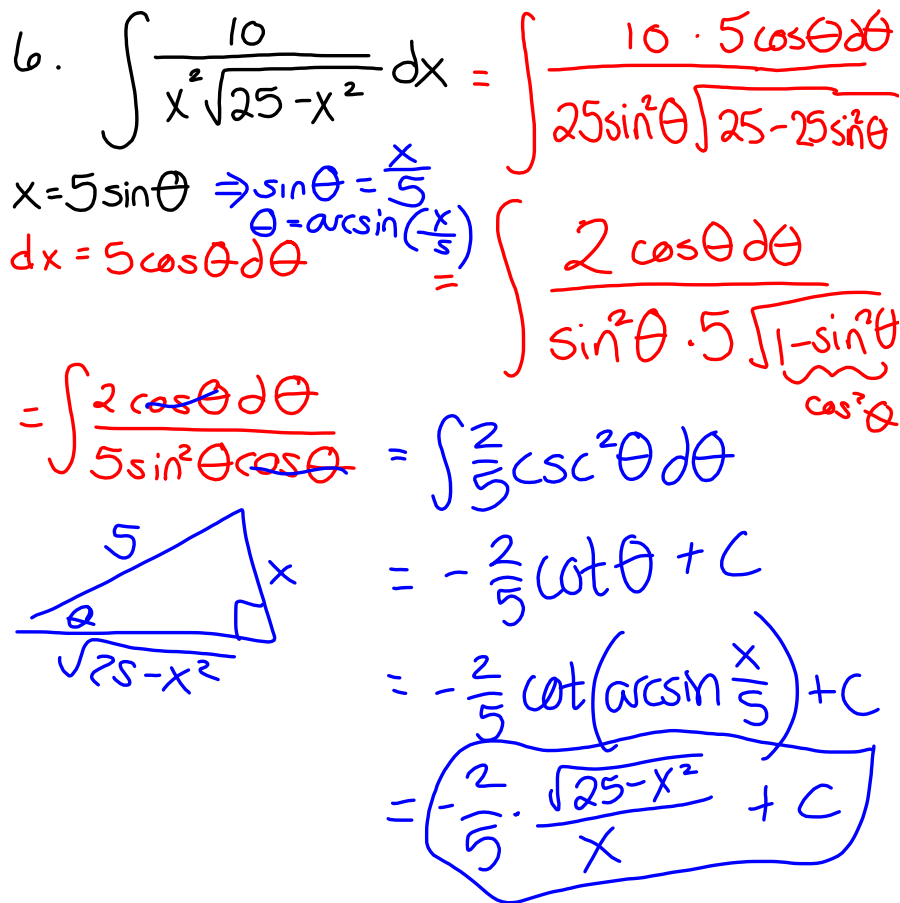 6. ∫ 10 / (x²√(25 - x²)) dx = ∫ 10 · 5cosθdθ / (25sin²θ√(25-25sin²θ))
x = 5sinθ ⇒ sinθ = x/5
θ = arcsin(x/5)
dx = 5cosθdθ
= ∫ 2cosθdθ / (sin²θ · 5√(1-sin²θ))
cos²θ
= ∫ 2cosθdθ / (5sin²θcosθ) = ∫ 2/5 csc²θdθ
5
x
θ
√(25-x²)
= - 2/5 cotθ + C
= - 2/5 cot(arcsin x/5) + C
= - 2/5 · √(25-x²) / x + C